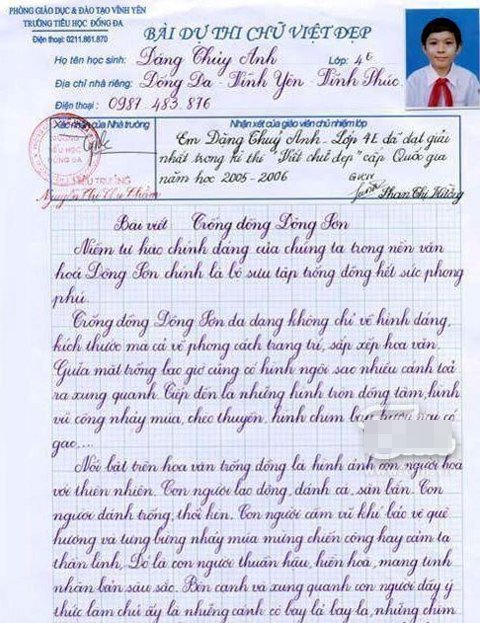 PHÒNG GIÁO DỤC & ĐÀO TẠO VĨNH YÊN
TRƯỜNG TIỂU HỌC ĐỐNG ĐA
Điện thoại: 0211.861.870
BÀI DỰ THI CHỮ VIỆT ĐẸP
Họ tên học sinh: Đặng Thủy Anh Lớp: 4E
Địa chỉ nhà riêng: Đống Đa - Vĩnh Yên - Vĩnh Phúc
Điện thoại: 0987 483 876
Xác nhận của Nhà trường
Nhận xét của giáo viên chủ nhiệm lớp
Em Đặng Thuỷ Anh - Lớp 4E đã đạt giải
nhất trong kì thi "Viết chữ đẹp" cấp Quốc gia
năm học 2005 - 2006
GVCN
Phan Thị Hường
Bài viết Trống đồng Đông Sơn
Niềm tự hào chính đáng của chúng ta trong nền văn
hoá Đông Sơn chính là bộ sưu tập trống đồng hết sức phong
phú.
Trống đồng Đông Sơn đa dạng không chỉ về hình dáng,
kích thước mà cả về phong cách trang trí, sắp xếp hoa văn.
Giữa mặt trống bao giờ cũng có hình ngôi sao nhiều cánh toả
ra xung quanh. Tiếp đến là những hình tròn đồng tâm, hình
vũ công nhảy múa, chèo thuyền, hình chim
gạc....
Nổi bật trên hoa văn trống đồng là hình ảnh con người hoà
với thiên nhiên. Con người lao động, đánh cá, săn bắn. Con
người đánh trống, thổi kèn. Con người cầm vũ khí bảo vệ quê
hương và tưng bừng nhảy múa mừng chiến công hay cảm tạ
thần linh, Đó là con người thuần hậu, hiền hoà, mang tính
nhân bản sâu sắc. Bên cạnh và xung quanh con người đầy ý
thức làm chủ ấy là những cánh cò bay lả bay la, những chim